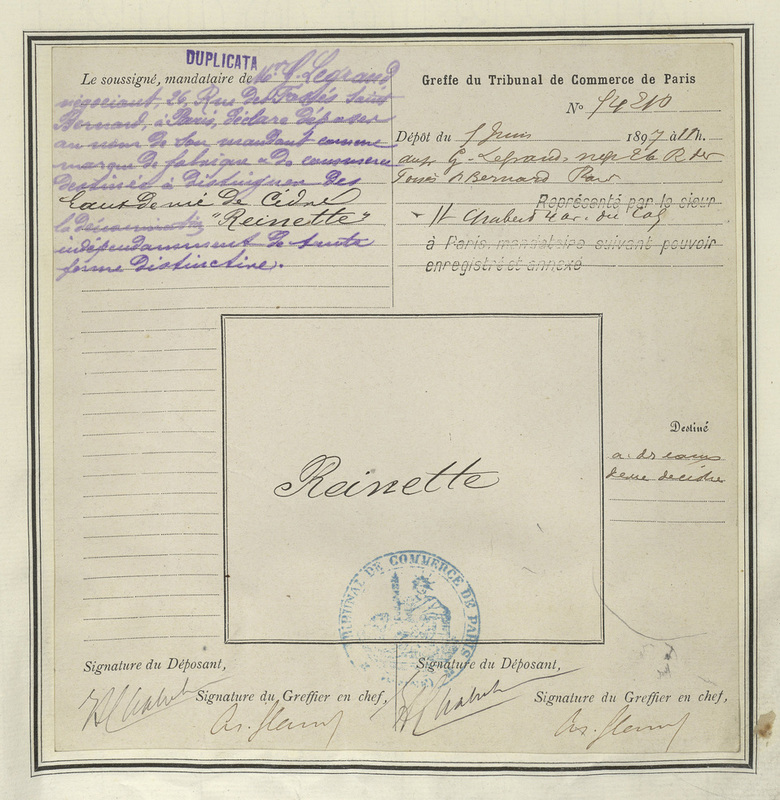 DUPLICATA
Le soussigné, mandataire de Mr. G. Legrand
négociant, 26, Rue des Fossés Saint
Bernard, à Paris, déclare déposer
au nom de son mandant comme
marque de fabrique & de commerce
destinée à distinguer des
Eaux de vie de Cidre
la dénomination "Reinette"
indépendamment de toute
forme distinctive.
Greffe du Tribunal de Commerce de Paris
No 54210
Dépôt du 5 Juin 1897 à h.
G. Legrand, R des
Fossés St Bernard Paris
Représenté par le sieur
H Chabert
à Paris, mandataire suivant pouvoir
enregistré et annexé
Reinette
Destiné
à des eaux
de vie de cidre
TRIBUNAL DE COMMERCE DE PARIS
Signature du Déposant,
Signature du Greffier en chef,
Signature du Déposant,
Signature du Greffier en chef,